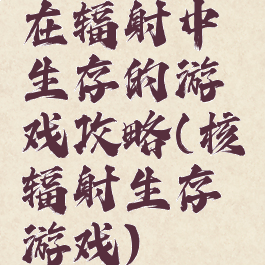 在辐射中
生存的游
戏攻略(核
辐射生存
游戏)